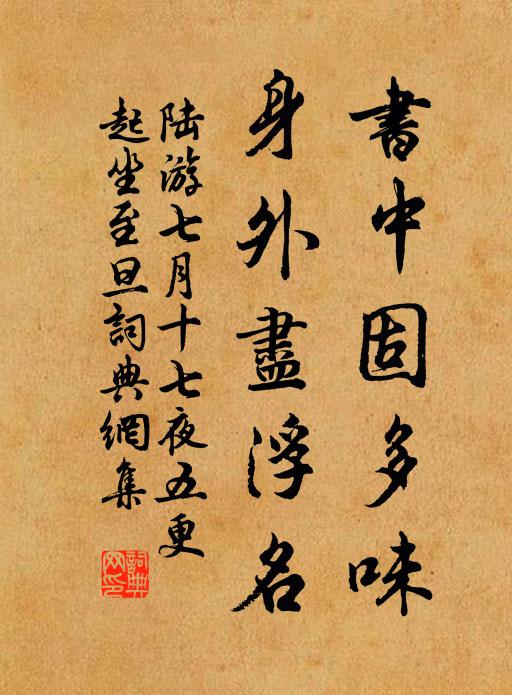 書中固多味
身外盡浮名
陆游七月十七夜五更
起坐至旦詞典網集
詞典网印